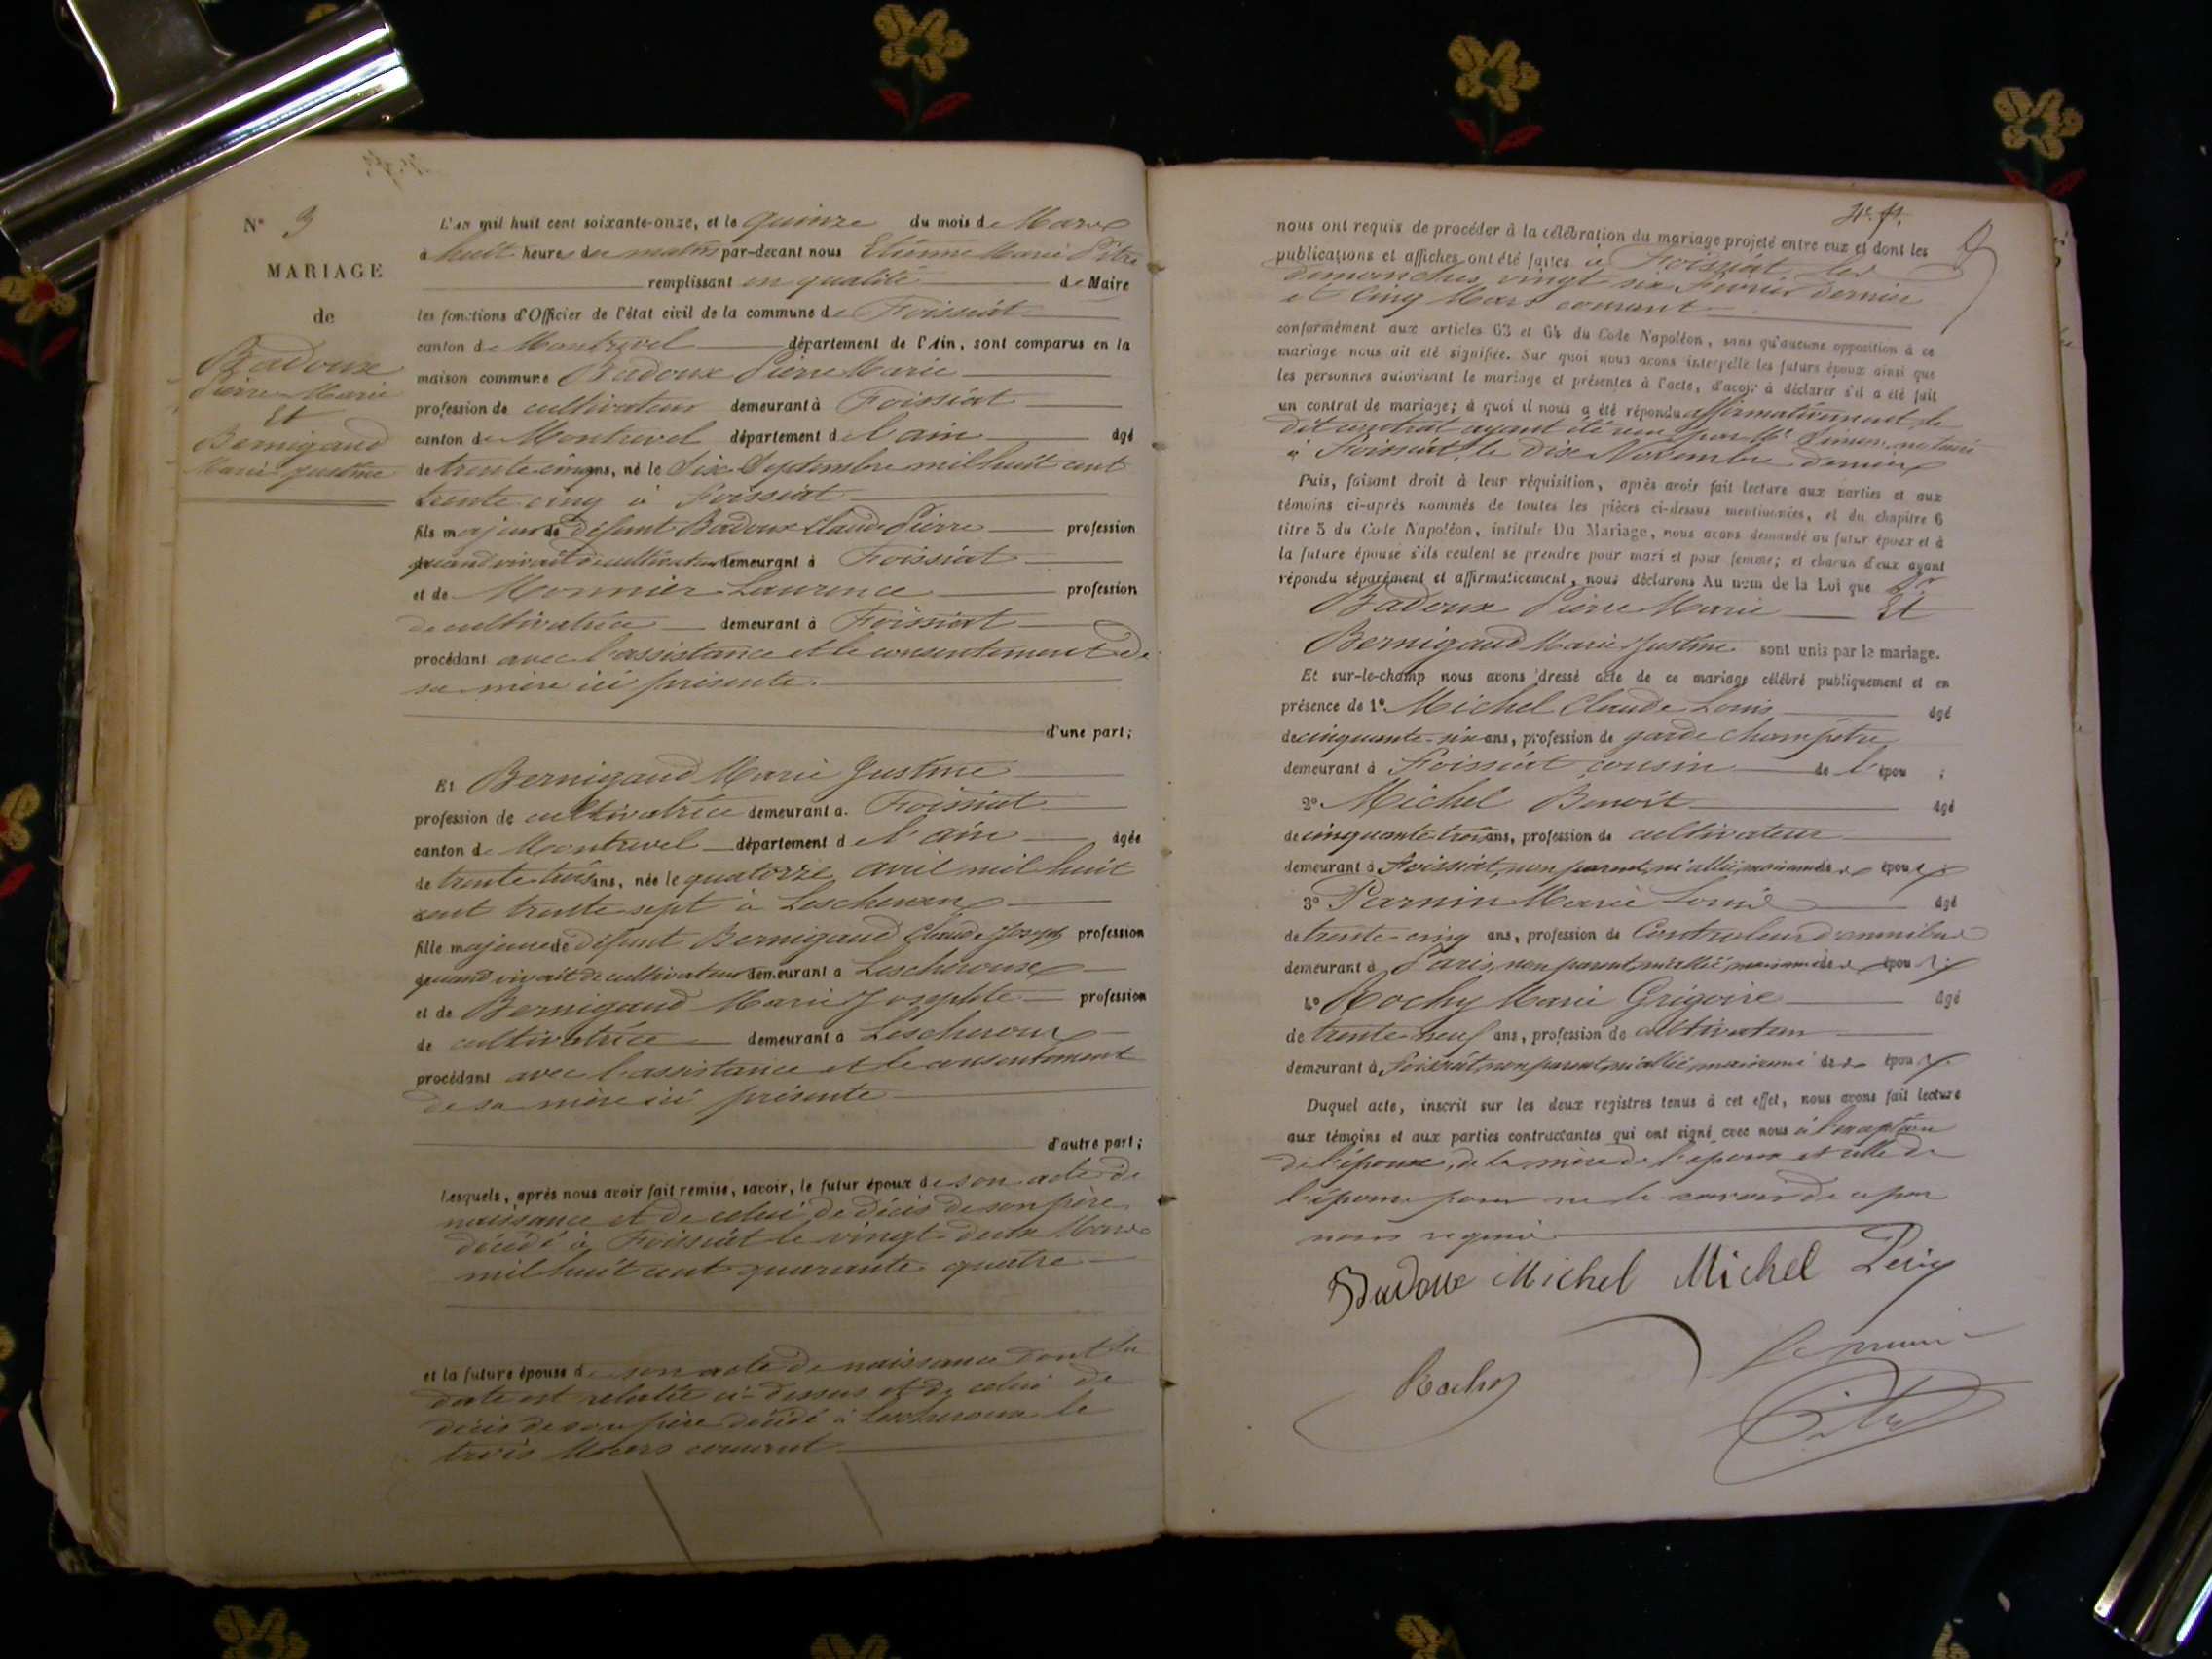 N° 3
MARIAGE
de
Badoux
Pierre Marie
Et
Bernigaud
Marie Justine
L'an mil huit cent soixante-onze, et le quinze du mois de Mars
à huit heures du matin par-devant nous Etienne Marie Pitre
remplissant en qualité de Maire
les fonctions d'Officier de l'état civil de la commune de Foissiat
canton de Montrevel département de l'Ain, sont comparus en la
maison commune Badoux Pierre Marie
profession de cultivateur demeurant à Foissiat
canton de Montrevel département de l'ain âgé
de trente cinq ans, né le Six Septembre mil huit cent
trente cinq à Foissiat
fils majeur de défunt Badoux Claude Pierre profession
quand vivait de cultivateur demeurant à Foissiat
et de Monnier Laurence profession
de cultivatrice demeurant à Foissiat
procédant avec l'assistance et le consentement de
sa mère ici présente.
d'une part;
Et Bernigaud Marie Justine
profession de cultivatrice demeurant à Foissiat
canton de Montrevel département de l'ain âgée
de trente trois ans, née le quatorze avril mil huit
cent trente sept à Lescheroux
fille majeure de défunt Bernigaud Claude Joseph profession
quand vivait de cultivateur demeurant à Lescheroux
et de Bernigaud Marie Josephte profession
de cultivatrice demeurant à Lescheroux
procédant avec l'assistance et le consentement
de sa mère ici présente
d'autre part;
Lesquels, après nous avoir fait remise, savoir, le futur époux de son acte de
naissance et de celui de décès de son père
décédé à Foissiat le vingt-deux Mars
mil huit cent quarante quatre
et la future épouse de son acte de naissance dont la
date est relatée ci-dessus et de celui de
décès de son père décédé à Lescheroux le
trois Mars courant
nous ont requis de procéder à la célébration du mariage projeté entre eux et dont les
publications et affiches ont été faites à Foissiat les
dimanches vingt six Février dernier
et Cinq Mars courant
conformément aux articles 63 et 64 du Code Napoléon, sans qu'aucune opposition à ce
mariage nous ait été signifiée. Sur quoi nous avons interpellé les futurs époux ainsi que
les personnes autorisant le mariage et présentes à l'acte, d'avoir à déclarer s'il a été fait
un contrat de mariage; à quoi il nous a été répondu affirmativement, le
dit contrat ayant été reçu par Me notaire
à Foissiat, le dix Novembre dernier
Puis, faisant droit à leur réquisition, après avoir fait lecture aux parties et aux
témoins ci-après nommés de toutes les pièces ci-dessus mentionnées, et du chapitre 6
titre 5 du Code Napoléon, intitulé Du Mariage, nous avons demandé au futur époux et à
la future épouse s'ils veulent se prendre pour mari et pour femme; et chacun d'eux ayant
répondu séparément et affirmativement, nous déclarons Au nom de la Loi que
Badoux Pierre Marie Et
Bernigaud Marie Justine sont unis par le mariage.
Et sur-le-champ nous avons dressé acte de ce mariage célébré publiquement et en
présence de 1° Michel Claude Louis âgé
de cinquante-six ans, profession de garde Champêtre
demeurant à Foissiat cousin de l'épou ;
2° Michel Benoit âgé
de cinquante trois ans, profession de cultivateur
demeurant à Foissiat, non parent, ni allié, mais ami de épou
3° Marie Louis âgé
de trente-cinq ans, profession de Controleur d'omnibus
demeurant à Paris, non parent, ni allié mais ami de épou
4° Rochy Marie Grégoire âgé
de trente neuf ans, profession de cultivateur
demeurant à Foissiat, non parent, ni allié, mais ami de épou
Duquel acte, inscrit sur les deux registres tenus à cet effet, nous avons fait lecture
aux témoins et aux parties contractantes qui ont signé avec nous à l'exception
de l'épouse, de la mère de l'époux et celle de
l'épouse pour ne le savoir de ce par
nous requis
Badoux Michel Michel
Rochy
Pitre